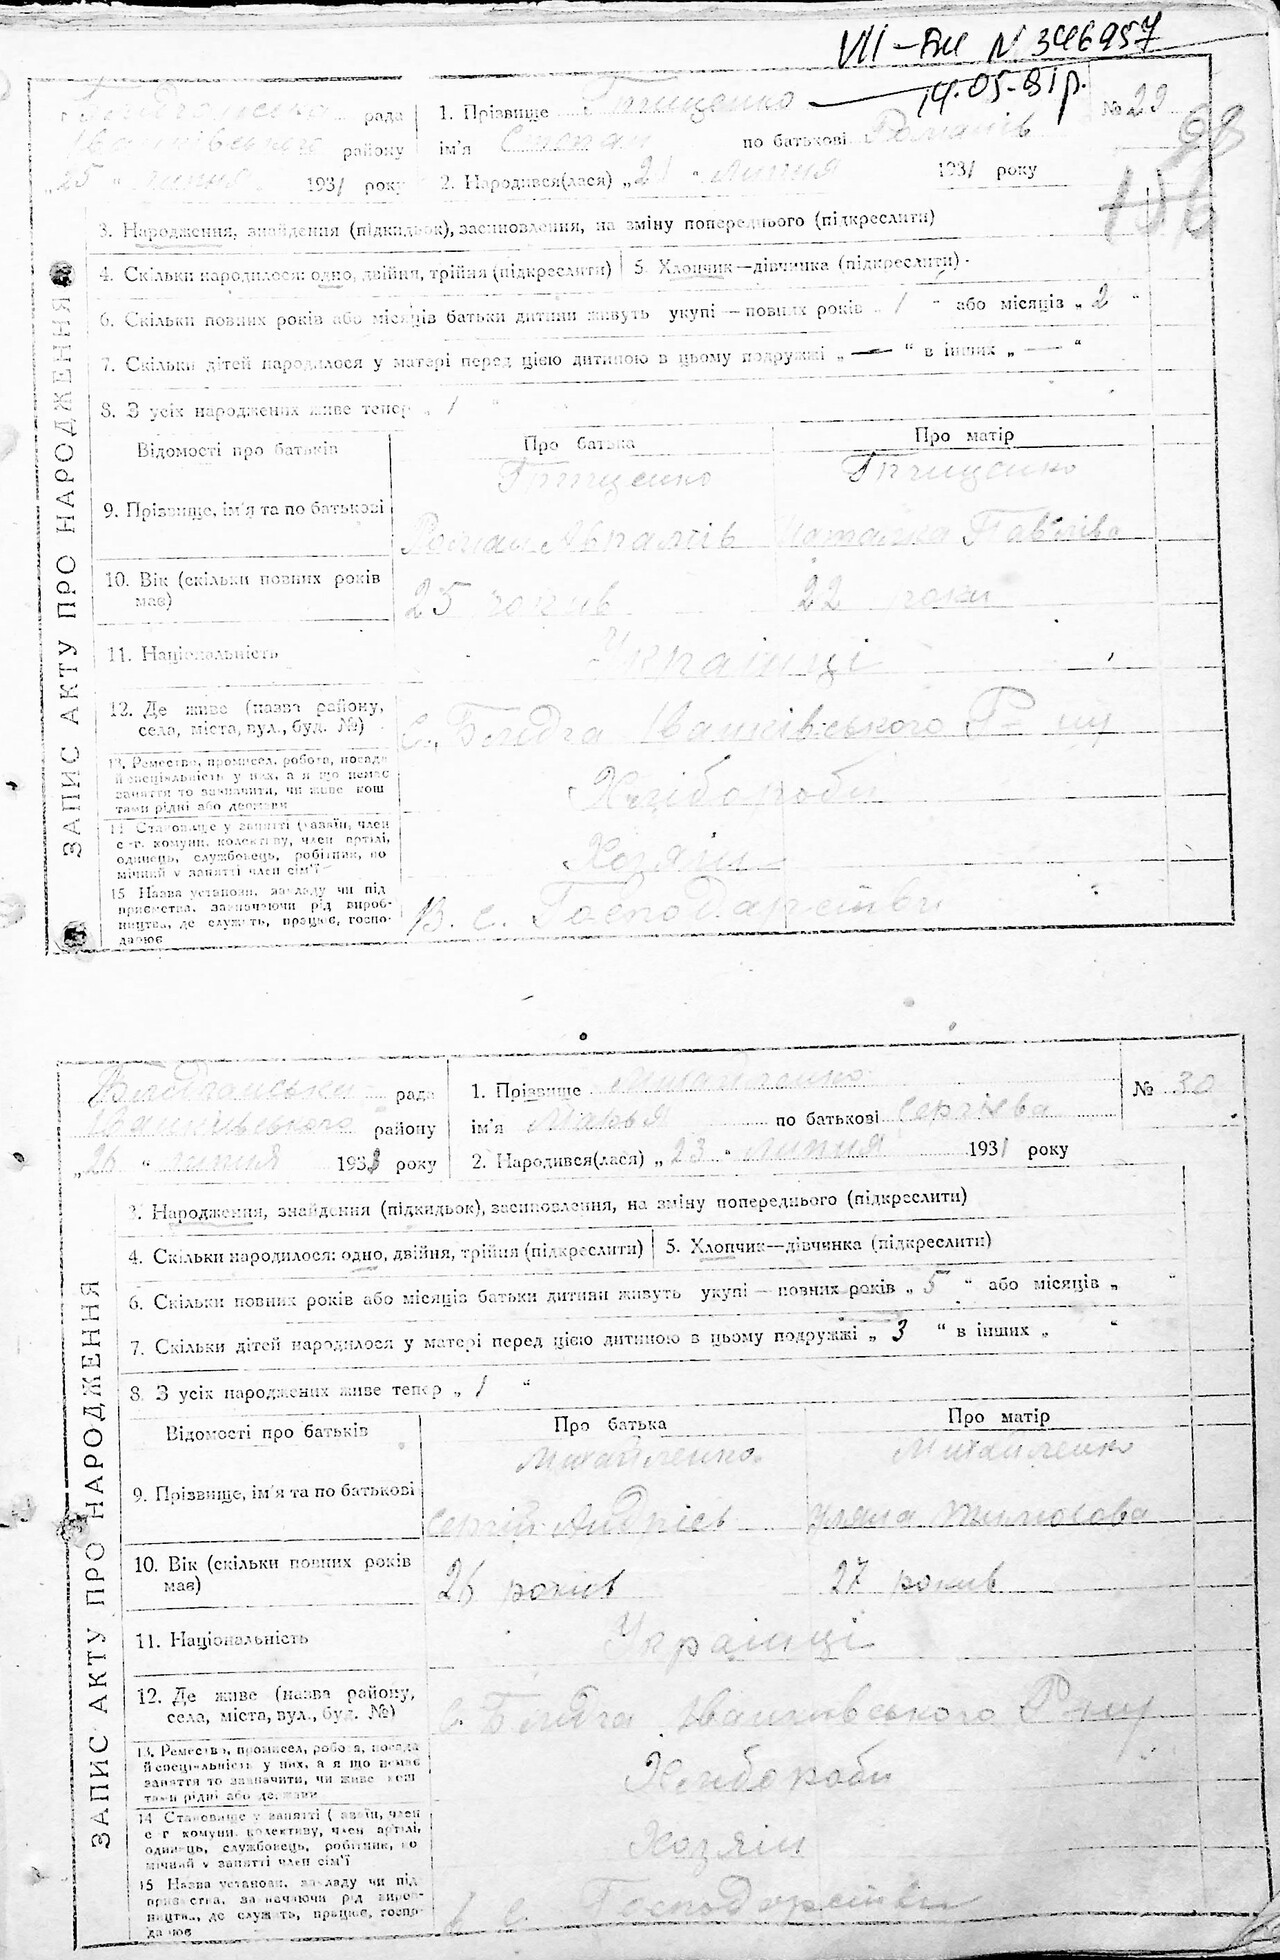 VII-БК N 346957
14.05.81 р.
рада
Іванківського району
„25 " липня 1931 року
1. Прізвище
ім'я Степан по батькові Романів
2. Народився(лася) „21 " липня 1931 року
№ 29
98
156
3. Народження, знайдення (підкидьок), засиновлення, на зміну попереднього (підкреслити)
4. Скільки народилося: одно, двійня, трійня (підкреслити) 5. Хлопчик—дівчинка (підкреслити)
6. Скільки повних років або місяців батьки дитини живуть укупі — повних років „ 1 " або місяців „ 2 "
7. Скільки дітей народилося у матері перед цією дитиною в цьому подружжі „ — " в інших „ — "
8. З усіх народжених живе тепер „ 1 "
ЗАПИС АКТУ ПРО НАРОДЖЕННЯ
Відомості про батьків Про батька Про матір
9. Прізвище, ім'я та по батькові
Роман Абрамів Наталка Павлівa
10. Вік (скільки повних років має) 25 років 22 роки
11. Національність Українці
12. Де живе (назва району, села, міста, вул., буд. №)
Іванківського Р-ну
13. Ремество, промисел, робота, посада й спеціяльність у них, а якщо немає заняття то зазначити, чи живе кош тами рідні або держави
Хлібороби
14 Становище у занятті (хазяїн, член с.-г. комуни, колективу, член артілі, одинець, службовець, робітник, по мічний у занятті член сім'ї
Хозяїн
15 Назва установи, закладу чи під приємства, зазначаючи рід вироб- ництва, де служить, працює, госпо- дарює
В. С. Господарстви
рада
Іванківського району
„26 " липня 1931 року
1. Прізвище Михайленко
ім'я Марья по батькові Сергієва
2. Народився(лася) „ 23 " липня 1931 року
№ 30
3. Народження, знайдення (підкидьок), засиновлення, на зміну попереднього (підкреслити)
4. Скільки народилося: одно, двійня, трійня (підкреслити) 5. Хлопчик—дівчинка (підкреслити)
6. Скільки повних років або місяців батьки дитини живуть укупі — повних років „ 5 " або місяців „ "
7. Скільки дітей народилося у матері перед цією дитиною в цьому подружжі „ 3 " в інших „ "
8. З усіх народжених живе тепер „ 1 "
ЗАПИС АКТУ ПРО НАРОДЖЕННЯ
Відомості про батьків Про батька Про матір
Михайленко Михайленко
9. Прізвище, ім'я та по батькові
Сергій Андрієв Уляна
10. Вік (скільки повних років має) 26 років 27 років
11. Національність Українці
12. Де живе (назва району, села, міста, вул., буд. №)
Іванківського Р-ну
13. Ремество, промисел, робота, посада й спеціяльність у них, а якщо немає заняття то зазначити, чи живе кош тами рідні або держави
Хлібороби
14 Становище у занятті (хазяїн, член с.-г. комуни, колективу, член артілі, одинець, службовець, робітник, по мічний у занятті член сім'ї
Хозяїн
15 Назва установи, закладу чи під приємства, зазначаючи рід вироб- ництва, де служить, працює, госпо- дарює
В С. Господорстви